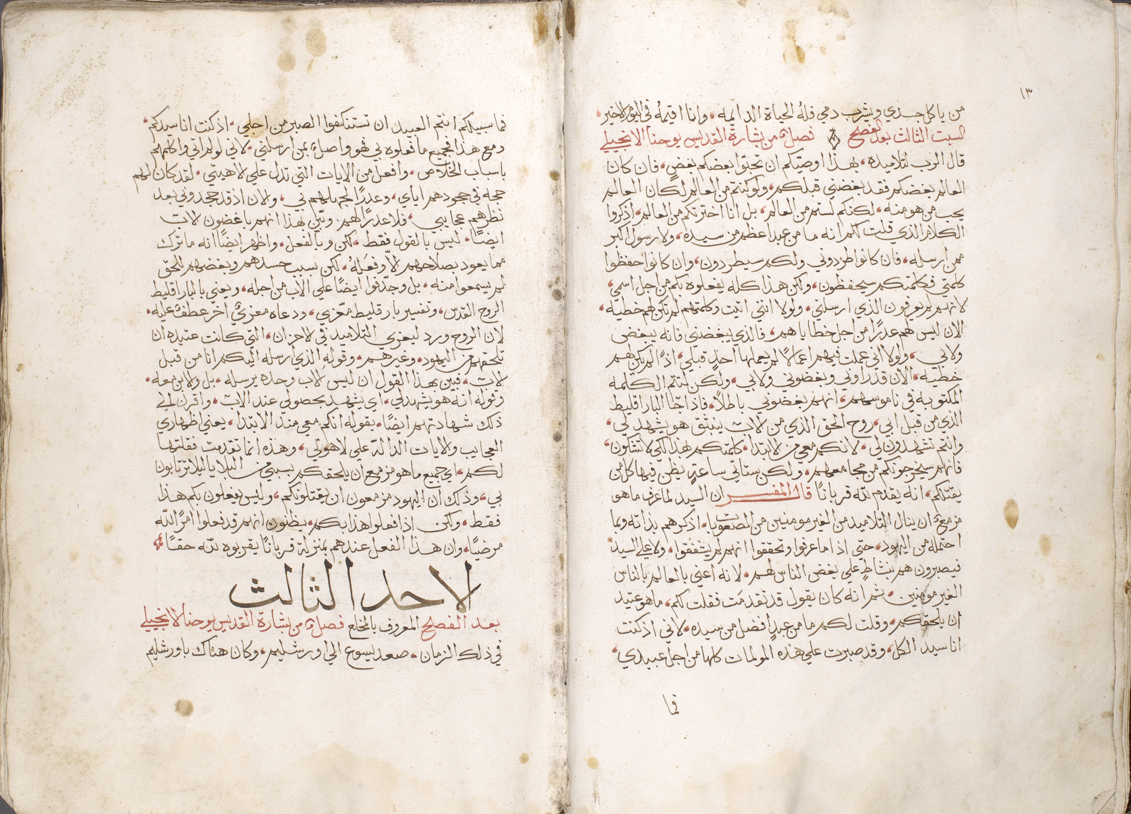 ١٣
من ياكل جسدي ويشرب دمي فله الحياة الدايمه • وانا اقيمهُ في اليوم الاخير •
السبت الثالث بعد الفصح فصل من بشارة القديس يوحنا الانجيلي
قال الرب لتلاميذه • بهذا اوصيكم ان تحبوا بعضكم بعض • فان كان
العالم يبغضكم فقد بغضني قبلكم • ولو كنتم من العالم لكان العالم
يحب من هو منه • لكنكم لستم من العالم • بل انا اخترتكم من العالم • اذكروا
الكلام الذي قلت لكم انه ما من عبد اعظم من سيده • ولا رسول اكبر
ممن ارسله • فان كانوا طردوني ولكم سيطردون • وان كانوا حفظوا
كلمتي فكلمتكم سيحفظون • ولكن هذا كله يفعلوه بكم من اجل اسمي •
لانهم لم يعرفون الذي ارسلني • ولولا انني اتيت وكلمتهم لم تكن لهم خطية •
الان ليس لهم عذرًا من اجل خطاياهم • فالذي يبغضني فانه يبغض
ولابي • ولولا اني عملت فيهم اعمالًا لم يعملها احدٌ قبلي • اذًا لم يكن لهم
خطيه • الان قد راوني وابغضوني ولابي • ولكن لتتم الكلمه
المكتوبه في ناموسهم • انهم ابغضوني باطلًا • فاذا جا البارقليط
الذي من قبل ابي • روح الحق الذي من الاب ينبثق هو يشهد لي •
وانتم تشهدون لي • لانكم معي من الابتدا • كلمتكم هذا لكي لا تشكون •
فانهم سيخرجونكم من مجامعهم • ولكن ستاتي ساعةٍ يظن فيها كل من
يقتلكم • انه يقدم لله قربانًا قال المفسر ان السيد لما عرف ما هو
مزمعٌ ان ينال التلاميذ من الغير مومنين من الصعوبات • اذكرهم بذاته وبما
احتمله من اليهود • حتى اذا ما عرفوا وتحققوا انهم لم يشفقوا • ولا على السيد
فيصبرون هم بنشاطٍ على بغض الناس لهم • لانه اعني بالعالم بالناس
الغير مومنين • ثم انه كان يقول قد تقدمت فقلت لكم • ما هو عتيد
ان يلحقكم • وقلت لكم ما من عبدٍ افضل من سيده • لاني اذ كنت
انا سيد الكل • وقد صبرت على هذه المولمات كلها من اجل عبيدي •
فما
فما سبيلكم انتم العبيد ان تستنكفوا الصبر من اجلي • اذ كنت انا سيدكم •
ومع هذا فجميع ما فعلوه بي فهو واصل بمن ارسلني • لاني لو لم اتي واكلمهم
باسباب الخلاص • وافعل من الايات التي تدل على لاهوتي • لقد كان لهم
حجه في جحودهم اياي • وعذرًا لجهالهم بي • ولان اذ قد جحدوني بعد
نظرهم عجايبي • فلا عذر لهم • وتبين بهذا انهم باغضون لابي
ايضًا • ليس بالقول فقط • لكن وبالفعل • واظهر ايضًا انه ما ترك
مما يعود بصلاحهم الا وفعله • لكن بسبب حسدهم وبغضهم للحق
لم يسمعوا منه • بل وجدفوا ايضًا على الاب من اجله • ويعني بالبارقليط
الروح القدس • وتفسير بارقليط معزي • ودعاه معزيًا اخر عطفًا عليه •
لان الروح ورد ليعزي التلاميذ في الاحزان • التي كانت عتيده ان
تلحقهم من اليهود وغيرهم • وقوله الذي ارسله اليكم انا من قبل
لابي • فبين بهذا القول ان ليس الاب وحده يرسله • بل والابن معه •
وقوله انه هو يشهد لي • اي يشهد بحصولي عند الاب • واقرن الى
ذلك شهادتهم ايضًا • بقوله انكم معي منذ الابتدا • يعني اظهاري
العجايب والايات الدالة على لاهوتي • وهذه انما تقدمت فقلتها
لكم • اي جميع ما هو مزمع ان يلحقكم بسببي من البلايا ليلا ترتابون
بي • وذلك ان اليهود مزمعون ان يقتلونكم • وليس يفعلون بكم هذا
فقط • ولكن اذا فعلوا هذا بكم • يظنون انهم قد فعلوا امرًا لله
مرضيًا • وان هذا الفعل عندهم بمنزلة قربانًا يقربوه لله حقًا •
الاحد الثالث
بعد الفصح المعروف بالمخلع فصل من بشارة القديس يوحنا الانجيلي
في ذلك الزمان • صعد يسوع الى اورشليم • وكان هناك باورشليم